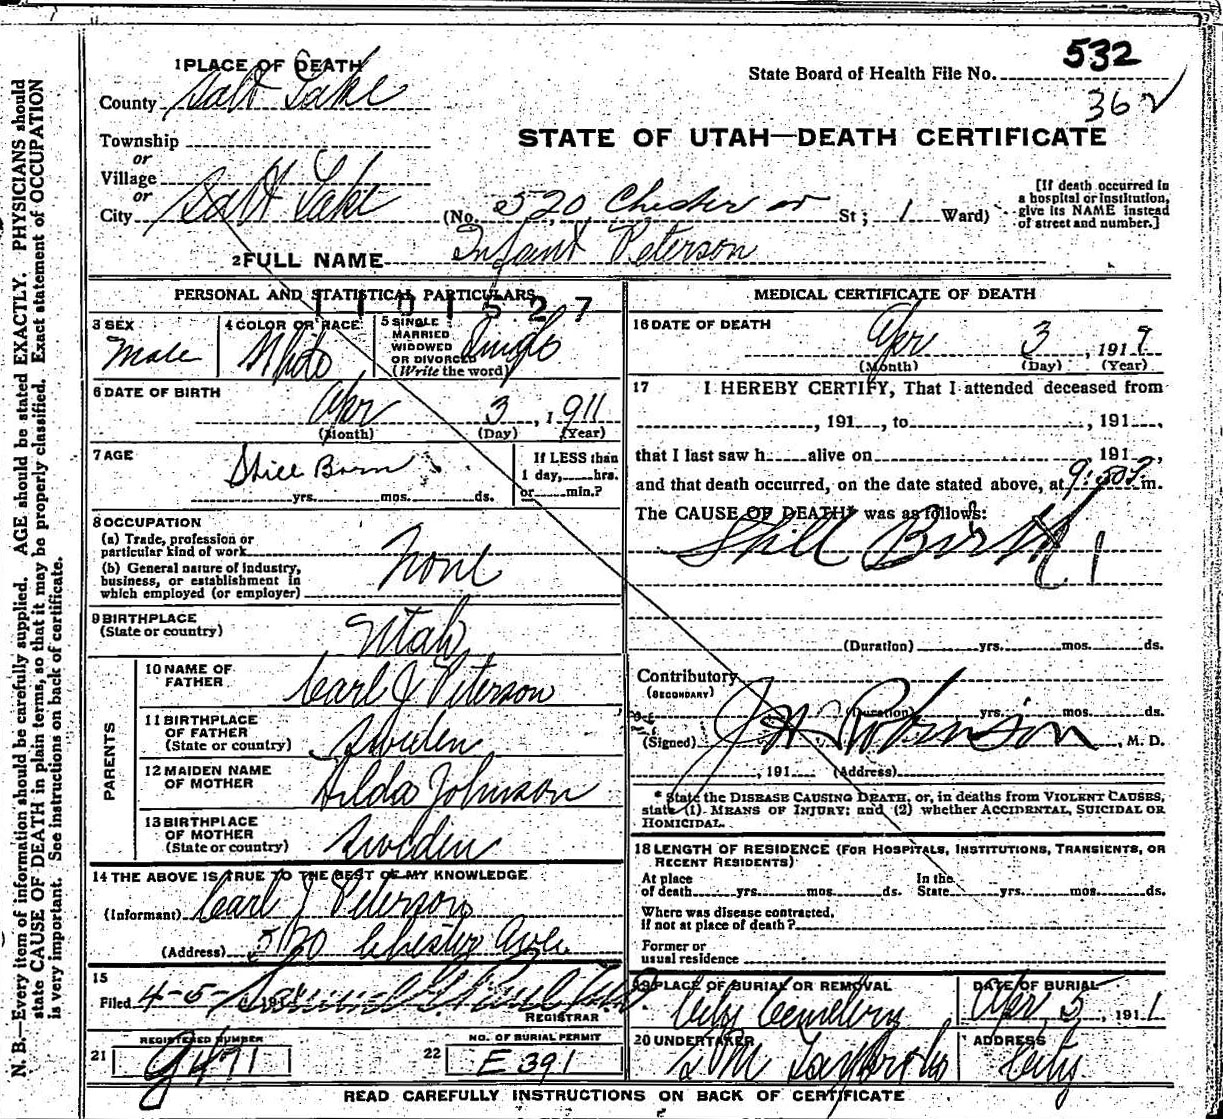 N. B.—Every item of information should be carefully supplied. AGE should be stated EXACTLY. PHYSICIANS should
state CAUSE OF DEATH in plain terms, so that it may be properly classified. Exact statement of OCCUPATION
is very important. See instructions on back of certificate.
1 PLACE OF DEATH
County Salt Lake
Township
or
Village
or
City Salt Lake
State Board of Health File No. 532
362
STATE OF UTAH—DEATH CERTIFICATE
(No. 520 Chester av St; 1 Ward)
[If death occurred in
a hospital or institution,
give its NAME instead
of street and number.]
2 FULL NAME Infant Peterson
PERSONAL AND STATISTICAL PARTICULARS
1101527
3 SEX
Male
4 COLOR OR RACE
White
5 SINGLE
MARRIED
WIDOWED
OR DIVORCED
(Write the word)
Single
6 DATE OF BIRTH
Apr 3, 1911
(Month) (Day) (Year)
7 AGE
Still Born
yrs. mos. ds.
If LESS than
1 day, hrs.
or min.?
8 OCCUPATION
(a) Trade, profession or
particular kind of work
(b) General nature of industry,
business, or establishment in
which employed (or employer)
None
9 BIRTHPLACE
(State or country)
Utah
PARENTS
10 NAME OF
FATHER
Carl J Peterson
11 BIRTHPLACE
OF FATHER
(State or country)
Sweden
12 MAIDEN NAME
OF MOTHER
Hilda Johnson
13 BIRTHPLACE
OF MOTHER
(State or country)
Sweden
14 THE ABOVE IS TRUE TO THE BEST OF MY KNOWLEDGE
(Informant) Carl J Peterson
(Address) 520 Chester Ave
15
Filed 4-5- 191
REGISTRAR
21
REGISTERED NUMBER
G491
22
NO. OF BURIAL PERMIT
E 391
MEDICAL CERTIFICATE OF DEATH
16 DATE OF DEATH
Apr 3, 191
(Month) (Day) (Year)
17 I HEREBY CERTIFY, That I attended deceased from
, 191 , to , 191 ,
that I last saw h alive on 191 ,
and that death occurred, on the date stated above, at m.
The CAUSE OF DEATH* was as follows:
Still Birth
(Duration) yrs. mos. ds.
Contributory
(SECONDARY)
(Duration) yrs. mos. ds.
(Signed) J H Robinson, M. D.
, 191 (Address)
* State the DISEASE CAUSING DEATH, or, in deaths from VIOLENT CAUSES,
state (1) MEANS OF INJURY; and (2) whether ACCIDENTAL, SUICIDAL OR
HOMICIDAL.
18 LENGTH OF RESIDENCE (FOR HOSPITALS, INSTITUTIONS, TRANSIENTS, OR
RECENT RESIDENTS)
At place
of death yrs. mos. ds.
In the
State yrs. mos. ds.
Where was disease contracted,
if not at place of death?
Former or
usual residence
19 PLACE OF BURIAL OR REMOVAL
City Cemetery
DATE OF BURIAL
Apr 5, 1911
20 UNDERTAKER
S M Taylor & Co
ADDRESS
City
READ CAREFULLY INSTRUCTIONS ON BACK OF CERTIFICATE